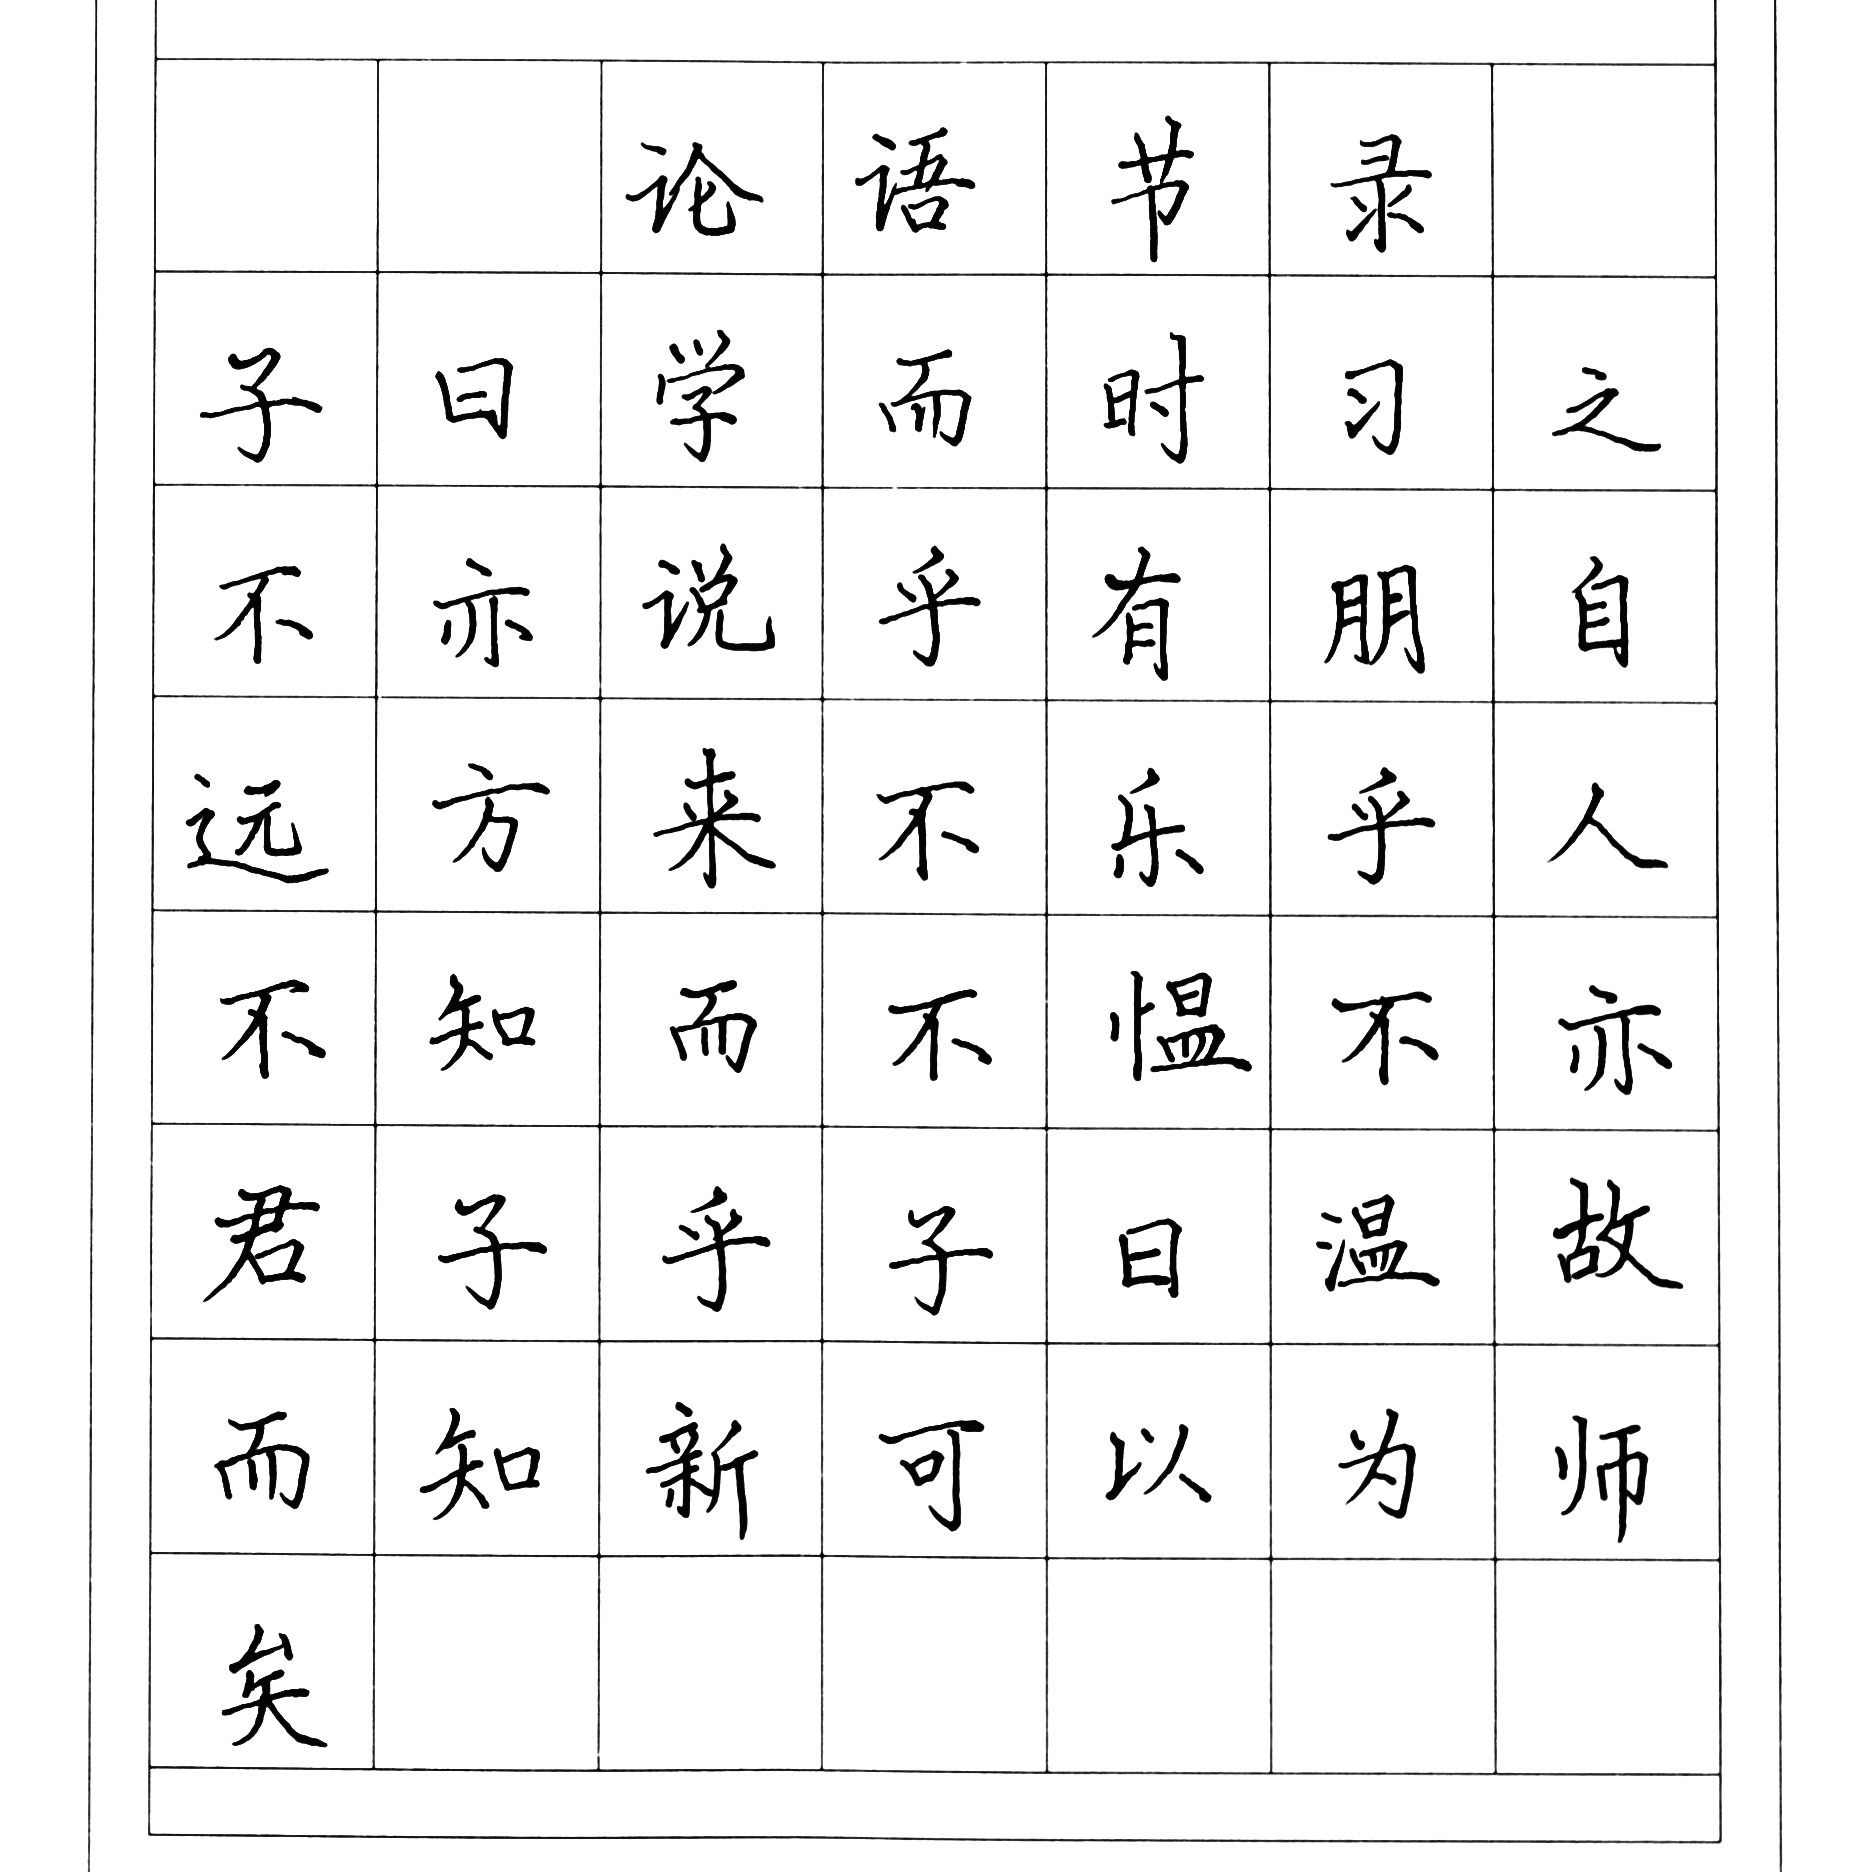 论语节录
子曰学而时习之
不亦说乎有朋自
远方来不乐乎人
不知而不愠不亦
君子乎子曰温故
而知新可以为师
矣